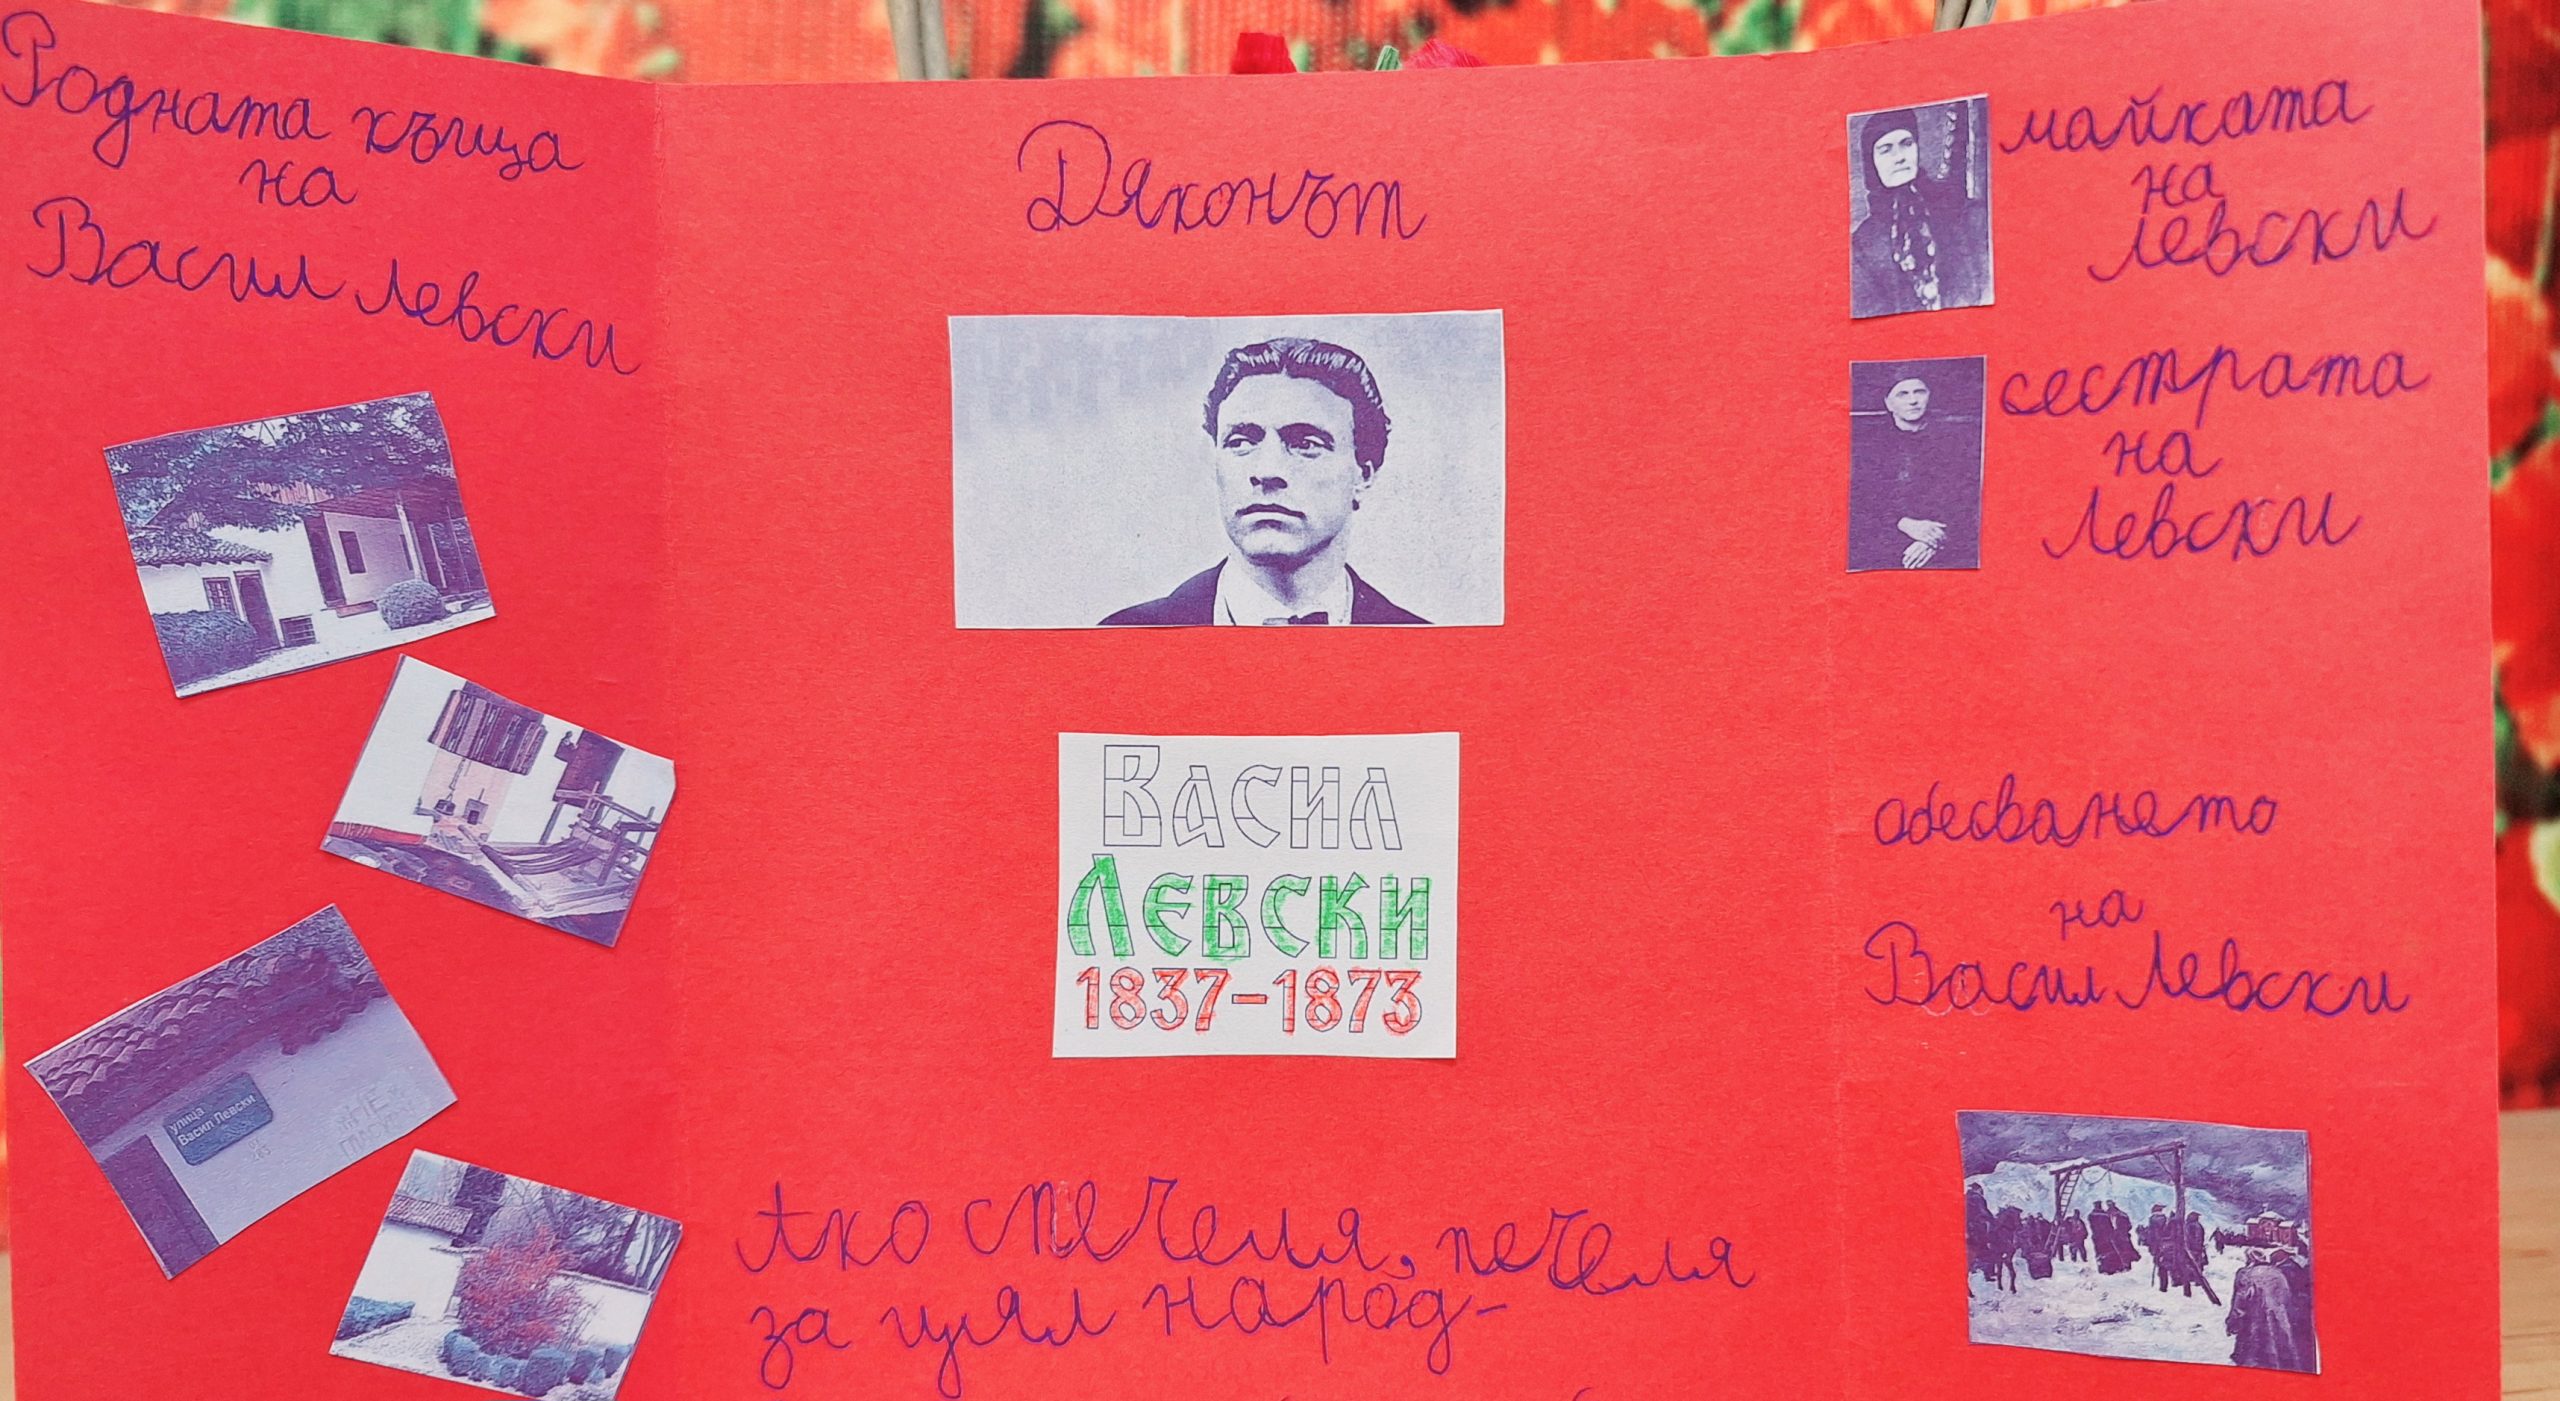 Родната къща
на
Васил Левски
улица
Васил Левски
Дяконът
Васил
Левски
1837-1873
Ако спечеля, печеля
за цял народ-
майката
на
Левски
сестрата
на
Левски
обесването
на
Васил Левски